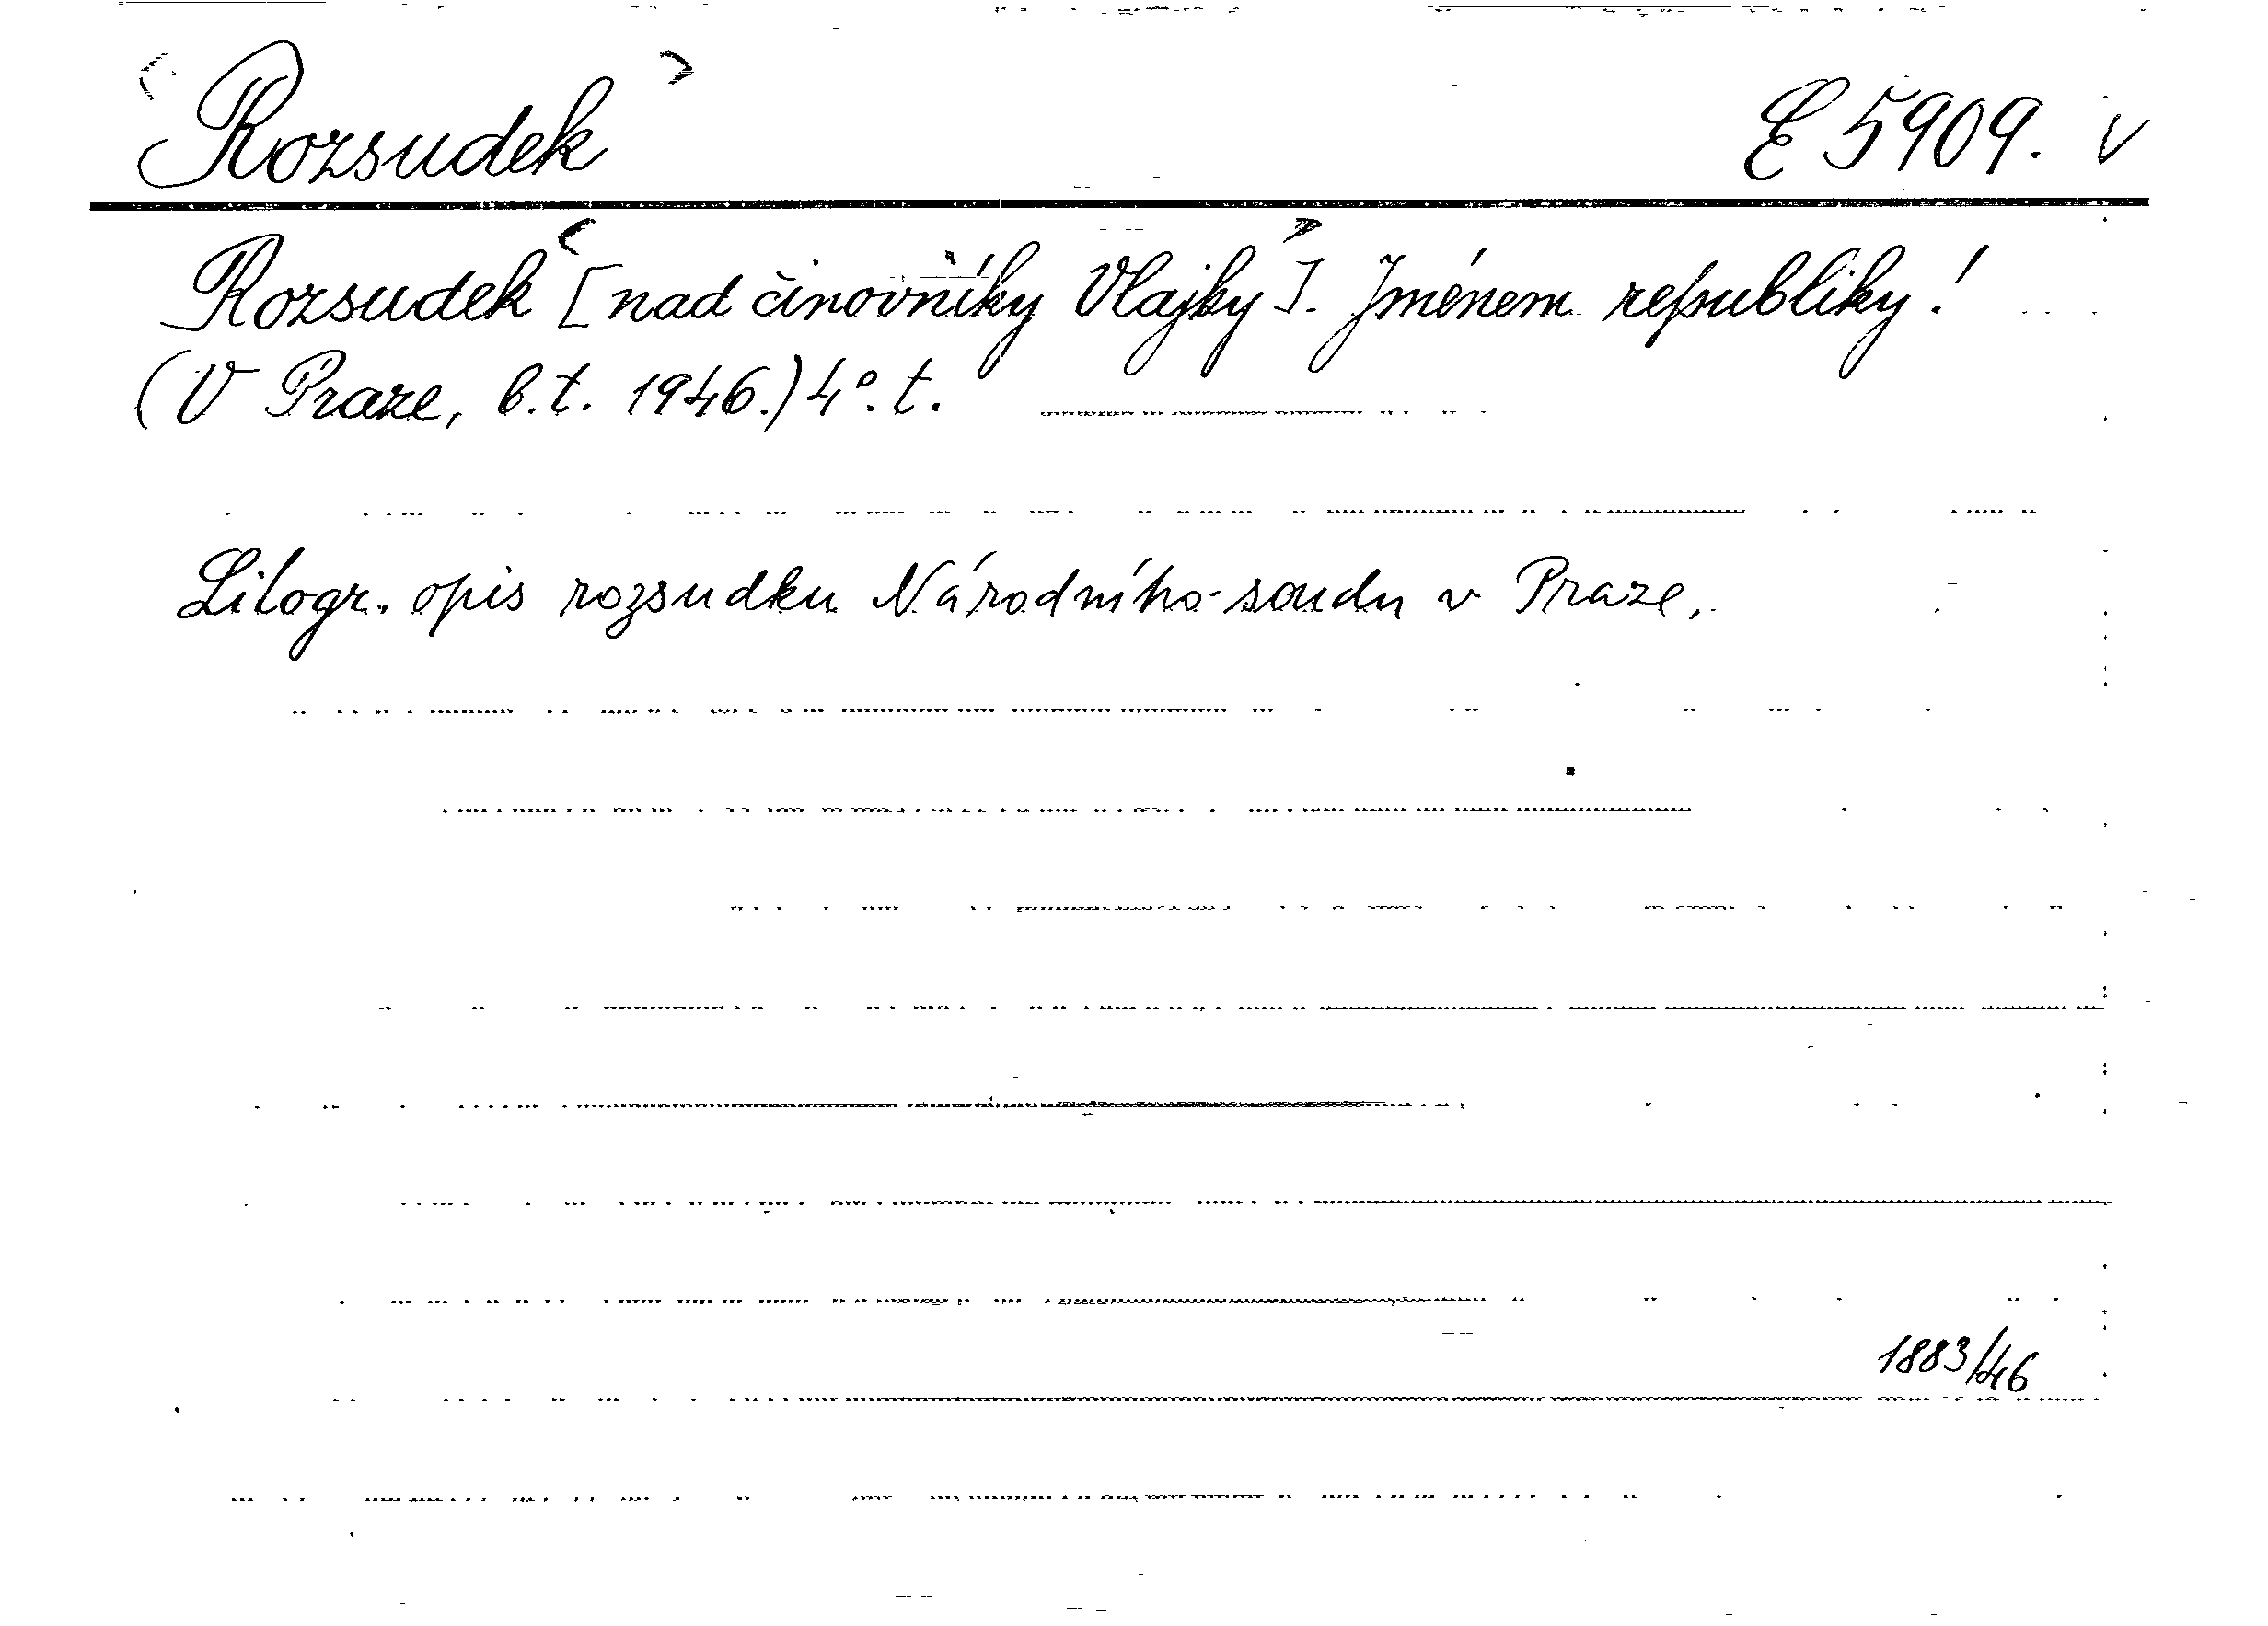 Rozsudek E 5909. v
Rozsudek [nad činovníky Vlajky]. Jménem republiky!
(V Praze, b.t. 1946.) 4°. t.
Litogr. opis rozsudku Národního soudu v Praze.
1883/46